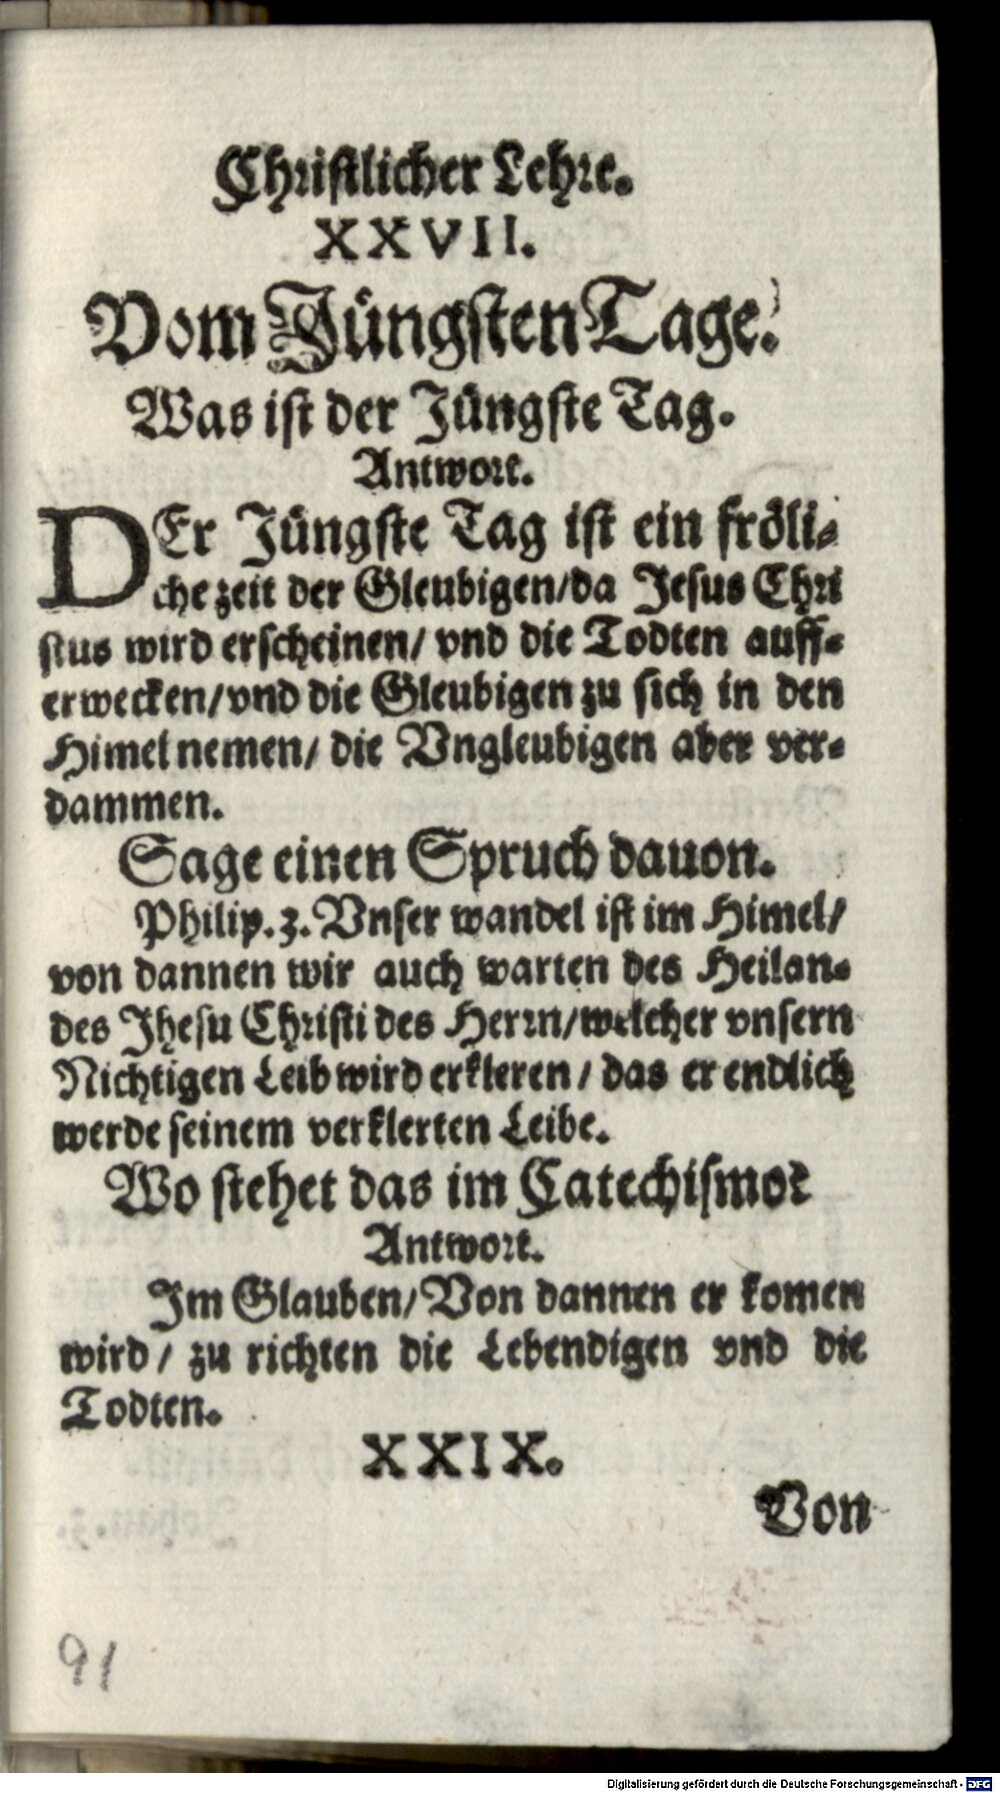 Christlicher Lehre.
XXVII.
Vom Jüngsten Tage.
Was ist der Jüngste Tag.
Antwort.
DEr Jüngste Tag ist ein fröli-
che zeit der Gleubigen/da Jesus Chri
stus wird erscheinen/ vnd die Todten auff-
erwecken/vnd die Gleubigen zu sich in den
Himel nemen/ die Vngleubigen aber ver-
dammen.
Sage einen Spruch dauon.
Philip. 3. Vnser wandel ist im Himel/
von dannen wir auch warten des Heilan-
des Jhesu Christi des Herrn/welcher vnsern
Nichtigen Leib wird erkleren/ das er endlich
werde seinem verklerten Leibe.
Wo stehet das im Catechismo?
Antwort.
Im Glauben/Von dannen er komen
wird/ zu richten die Lebendigen vnd die
Todten.
XXIX.
Von
91
Digitalisierung gefördert durch die Deutsche Forschungsgemeinschaft - DFG